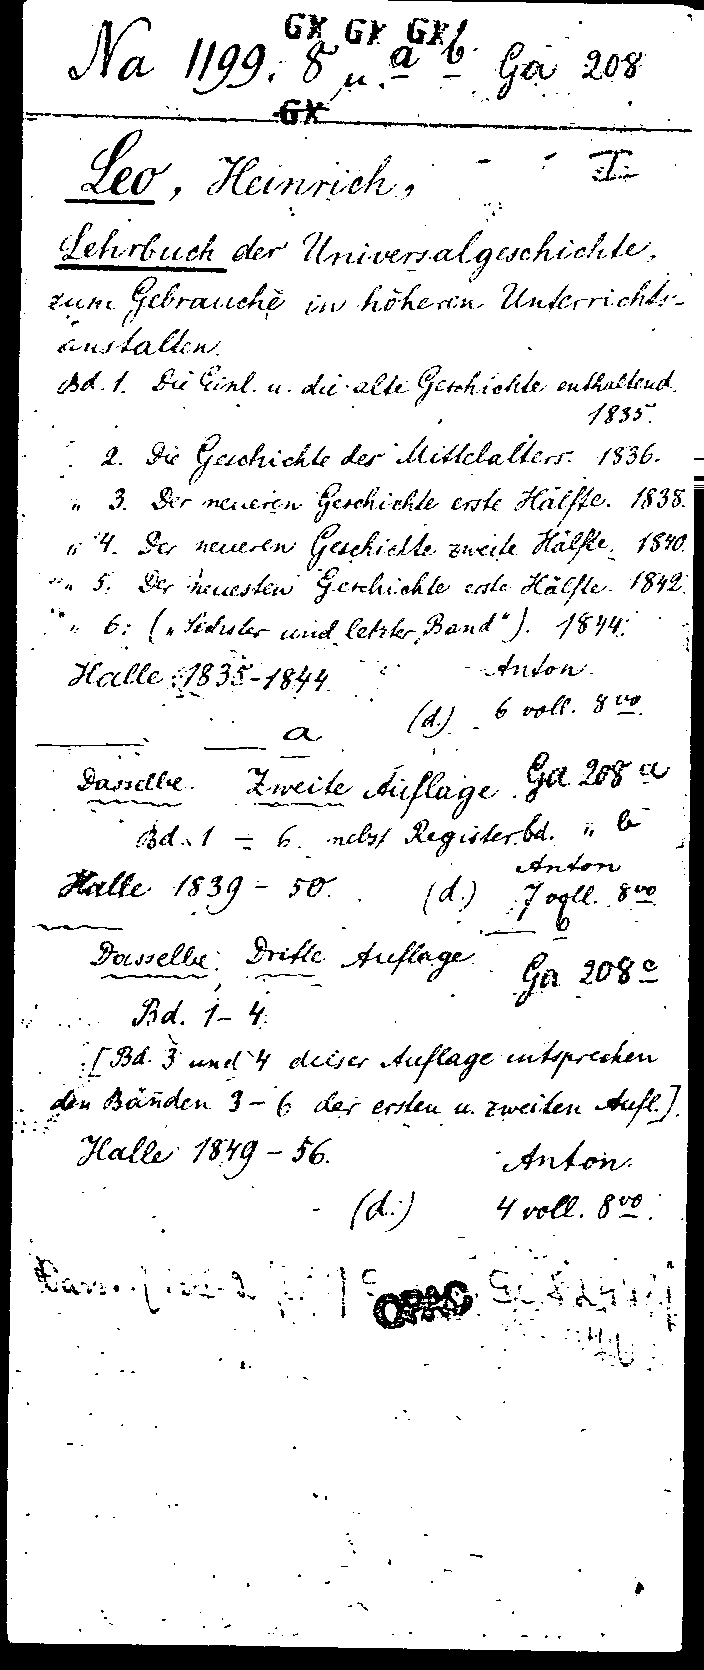 GX GX GX
Na 1199. 8 u. a b Ga 208
GX
Leo, Heinrich, I
Lehrbuch der Universalgeschichte,
zum Gebrauche in höheren Unterrichts-
anstalten.
Bd. 1. Die Einl. u. die alte Geschichte enthaltend.
1835.
" 2. Die Geschichte des Mittelalters. 1836.
" 3. Der neueren Geschichte erste Hälfte. 1838.
" 4. Der neueren Geschichte zweite Hälfte. 1840.
" 5. Der neuesten Geschichte erste Hälfte. 1842.
" 6. („Sechster und letzter Band"). 1844.
Halle 1835-1844. Anton.
(d.) 6 voll. 8vo.
a
Dasselbe. Zweite Auflage Ga 208 a
Bd. 1 - 6. nebst Registerbd. " b
Anton
Halle 1839 - 50. (d.) 7 voll. 8vo
b
Dasselbe. Dritte Auflage Ga 208 c
Bd. 1-4.
[Bd. 3 und 4 dieser Auflage entsprechen
den Bänden 3-6 der ersten u. zweiten Aufl.].
Halle 1849 - 56. Anton.
(d.) 4 voll. 8vo.
OPAC